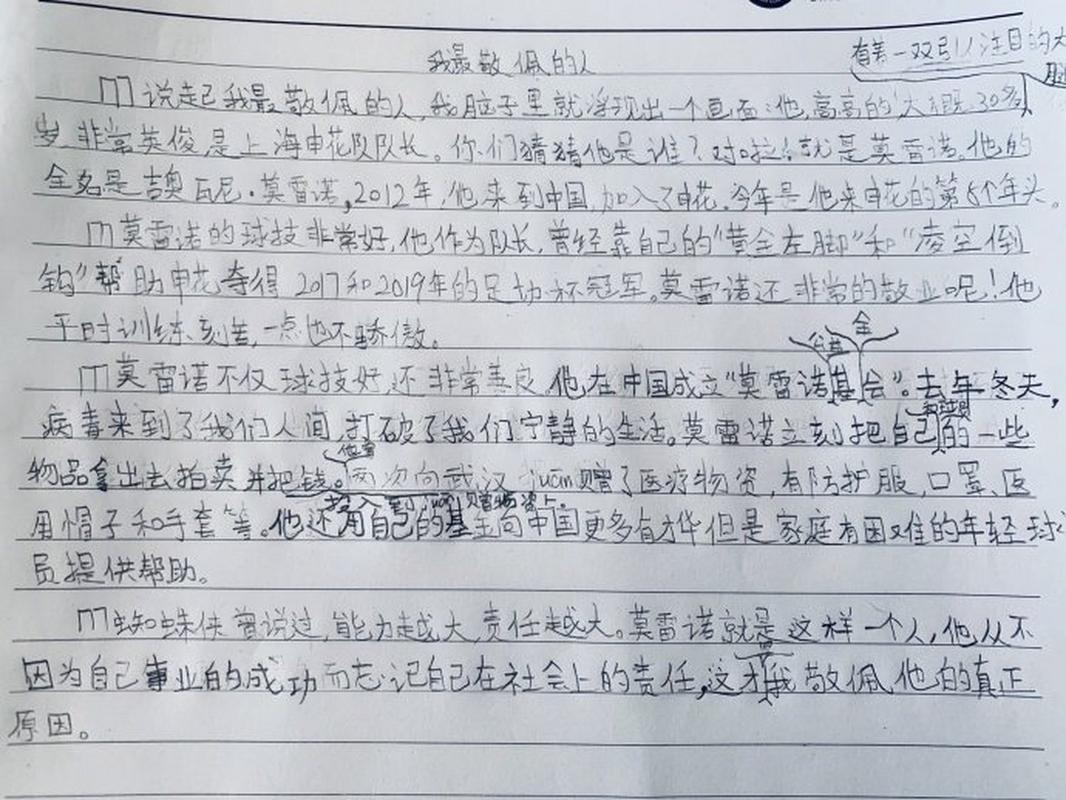 我最敬佩的人
有着一双引人注目的大
说起我最敬佩的人,我脑子里就浮现出一个画面:他,高高的,大概30多
岁,非常英俊,是上海申花队队长。你们猜猜他是谁?对啦!就是莫雷诺。他的
全名是吉奥瓦尼·莫雷诺,2012年,他来到中国,加入了申花,今年是他来申花的第 个年头。
莫雷诺的球技非常好,他作为队长,曾经靠自己的“黄金左脚”和“凌空倒
钩”帮助申花夺得2017和2019年的足协杯冠军。莫雷诺还非常的敬业呢!他
平时训练刻苦,一点也不骄傲。
公益 金
莫雷诺不仅球技好,还非常善良。他在中国成立“莫雷诺基会”。去年冬天,
病毒来到了我们人间,打破了我们宁静的生活。莫雷诺立刻把自己的一些
物品拿出去拍卖并把钱。两次向武汉 赠了医疗物资,有防护服,口罩、医
投入到 赠物资上。
用帽子和手套等。他还用自己的基金向中国更多有才华但是家庭有困难的年轻球
员提供帮助。
蜘蛛侠曾说过,能力越大,责任越大。莫雷诺就是这样一个人,他从不
因为自己事业的成功而忘记自己在社会上的责任,这才我敬佩他的真正
原因。